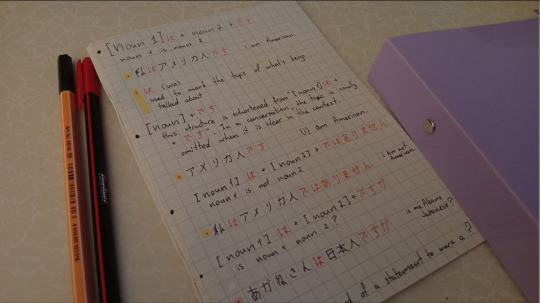 [noun 1] は + noun 2 + です
noun 1 is noun 2
私はアメリカ人です I am American.
は (wa)
used to mark the topic of what's being
talked about
[noun] + です
this structure is shortened from "[noun 1] は +
+ です". In a conversation, the topic is
omitted when it is clear in the context.
アメリカ人です (I) am American.
[noun 1] は + [noun 2] + ではありません
noun 1 is not noun 2
私はアメリカ人ではありません I am not
American.
[noun 1] は + [noun 2] + ですか
is noun 1 noun 2?
あかねさんは日本人ですか is ms Akane
Japanese?
of a statement to make a ?